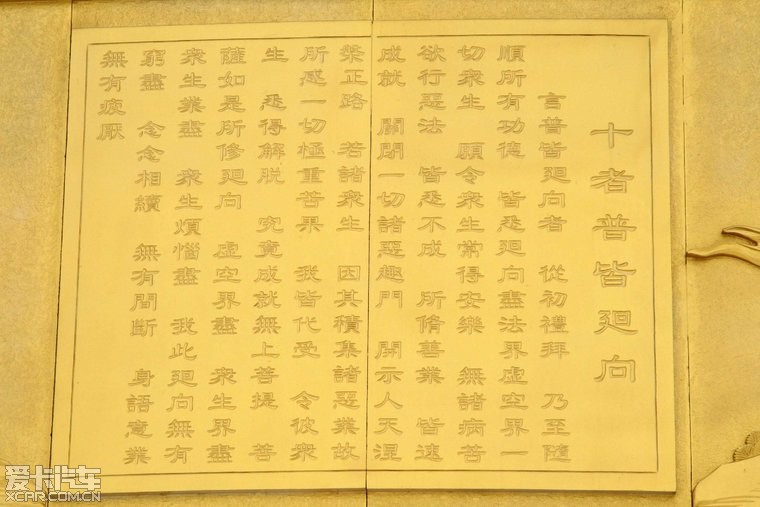 十者普皆廻向
言普皆廻向者　從初禮拜　乃至隨
順所有功德　皆悉廻向盡法界虛空界一
切衆生　願令衆生常得安樂　無諸病苦
欲行惡法　皆悉不成　所脩善業　皆速
成就　關閉一切諸惡趣門　開示人天涅
槃正路　若諸衆生　因其積集諸惡業故
所感一切極重苦果　我皆代受　令彼衆
生　悉得解脫　究竟成就無上菩提　菩
薩如是所修廻向　虛空界盡　衆生界盡
衆生業盡　衆生煩惱盡　我此廻向無有
窮盡　念念相續　無有間斷　身語意業
無有疲厭
爱卡汽车
XCAR.COM.CN